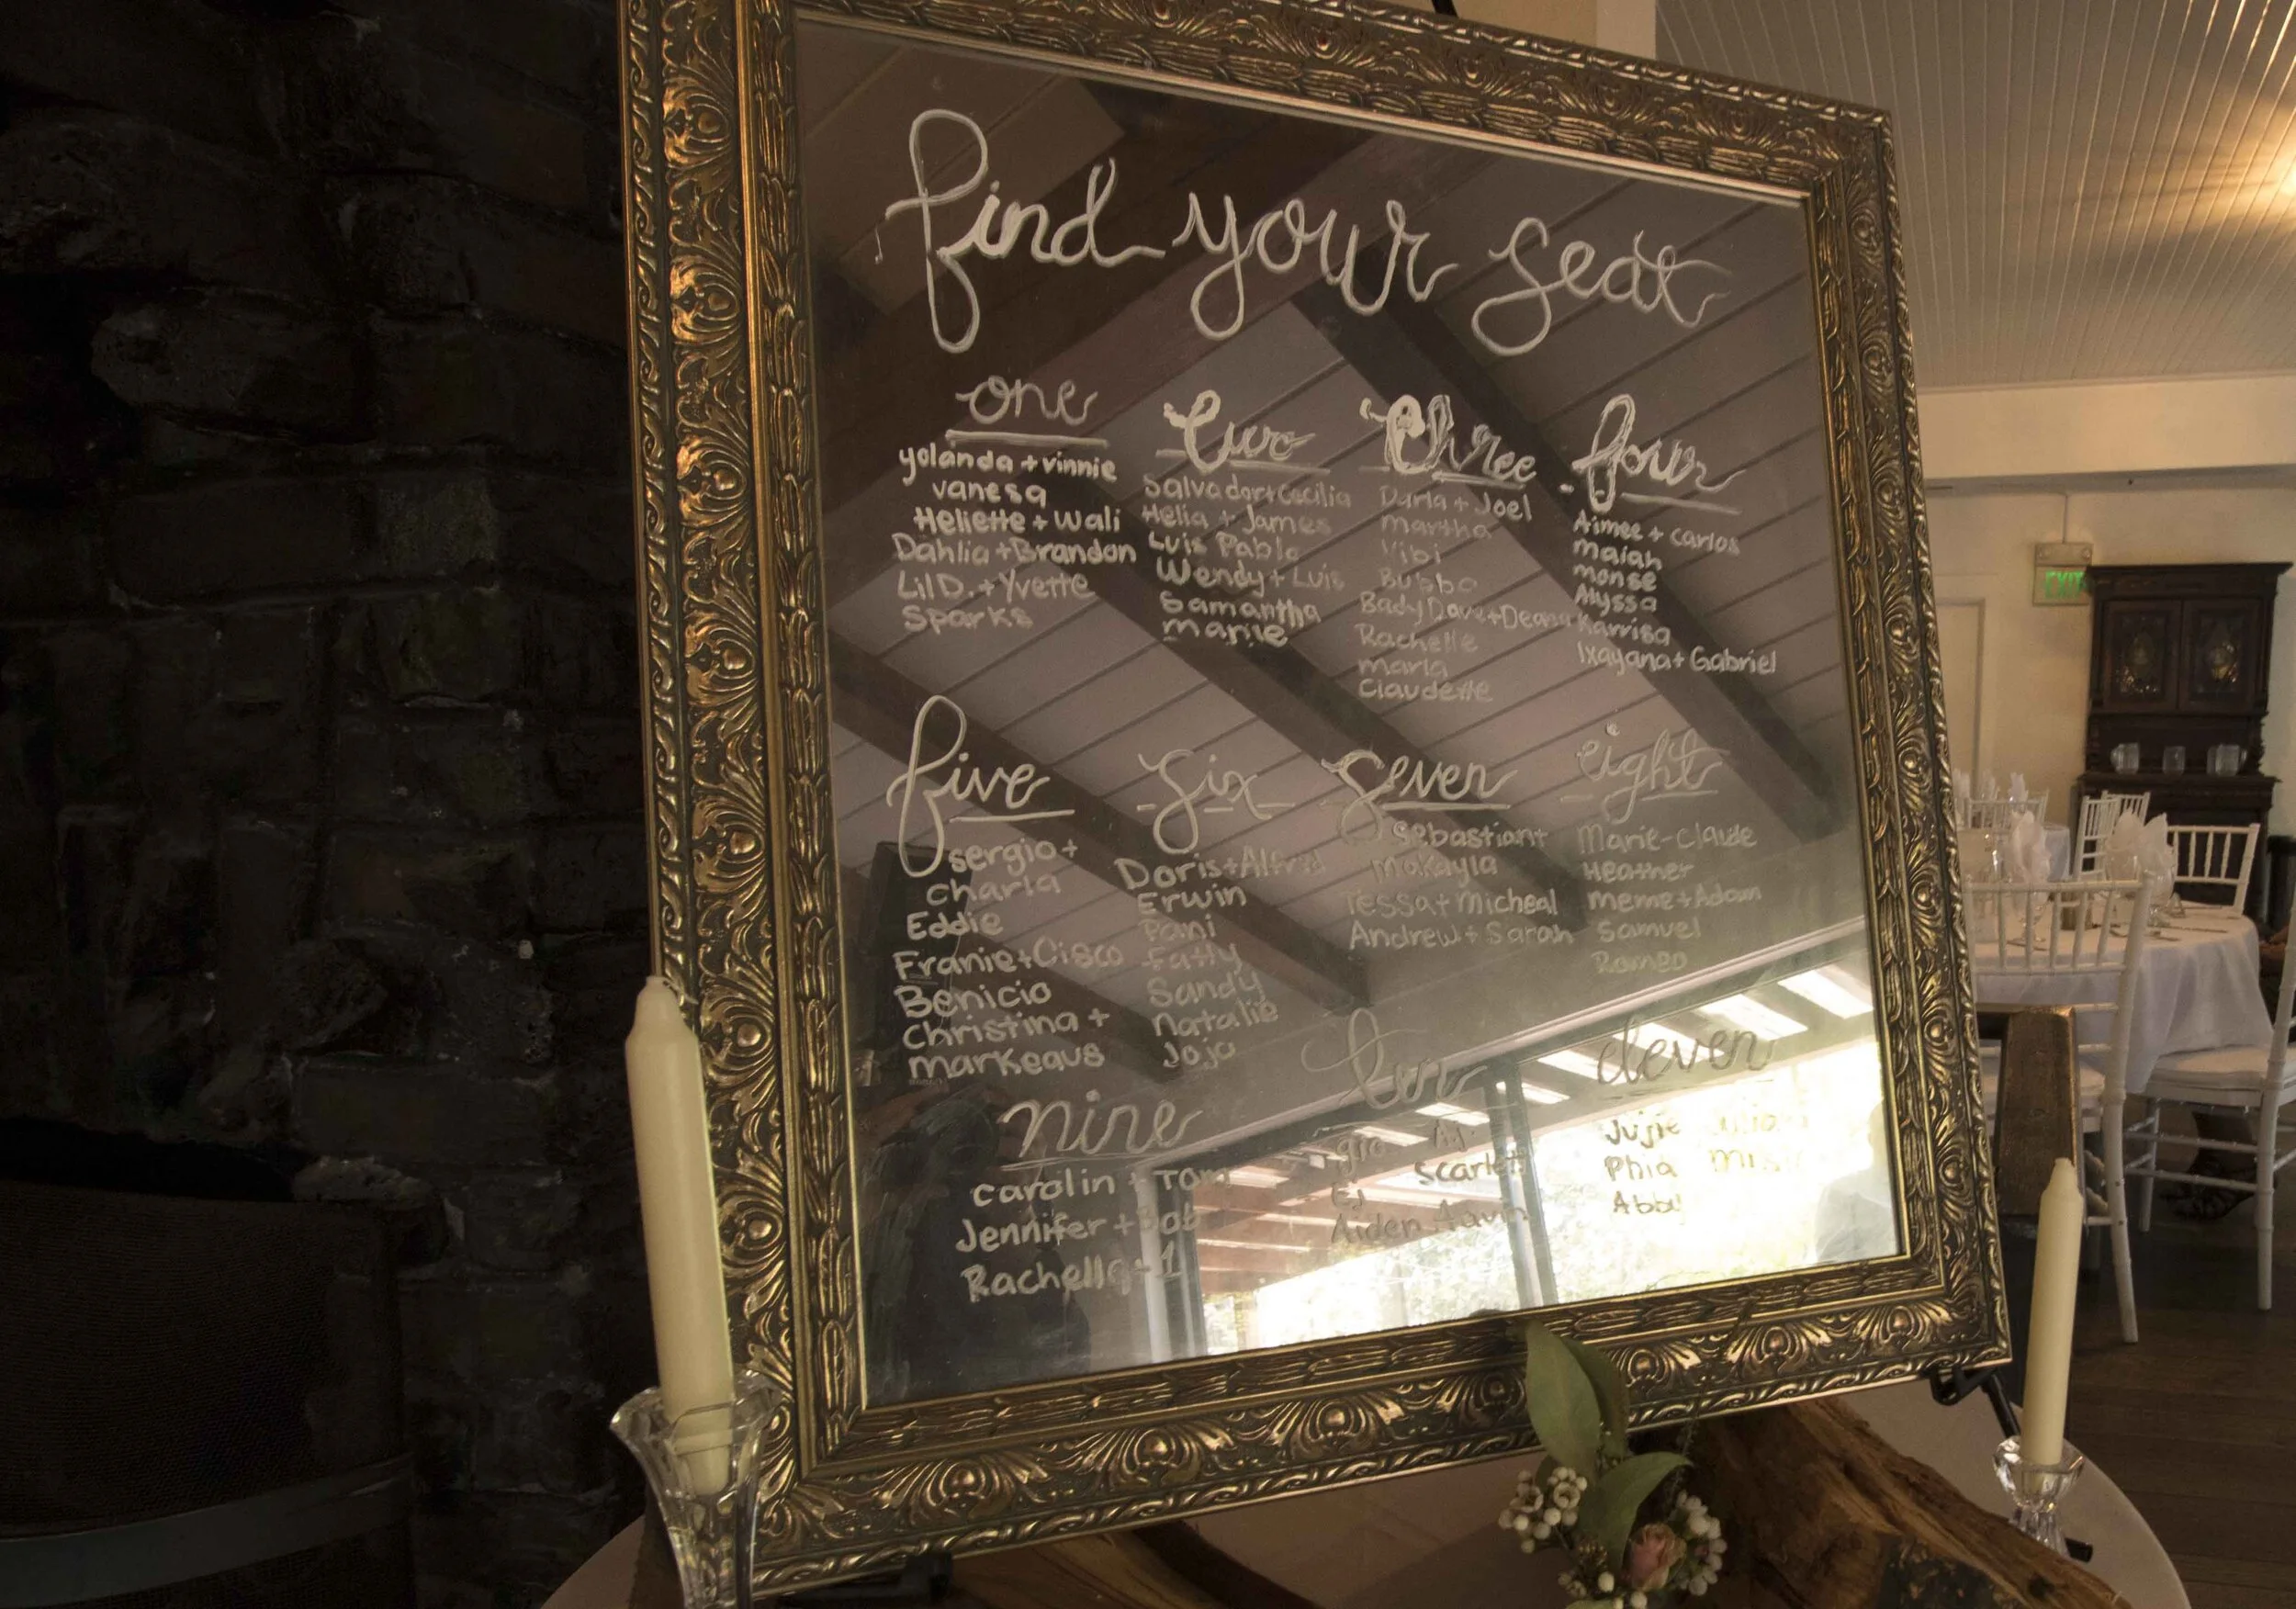 find your seat
one
yolanda + vinnie
vanesa
Heliette + Wali
Dahlia + Brandon
Lil D. + Yvette
Sparks
two
Salvador + Cecilia
Helia + James
Luis Pablo
Wendy + Luis
Samantha
marie
three
Darla + Joel
martha
Vibi
Bubba
Bady Dave + Deana
Rachelle
marla
Claudette
four
Aimee + carlos
maiah
monse
Alyssa
Karrisa
Ixayana + Gabriel
five
sergio +
charla
Eddie
Franie + Cisco
Benicio
Christina +
markeaus
six
Doris + Alfred
Erwin
Pani
Fatly
Sandy
Natalie
Jojo
seven
sebastian +
makayla
Tessa + Micheal
Andrew + Sarah
eight
Marie-claude
Heather
meme + Adam
Samuel
Romeo
nine
carolin + Tom
Jennifer + Bob
Rachell + 1
ten
AJ
Scarlett
EJ
Aiden Aavin
eleven
Jujie
Phia
Abby
EXIT